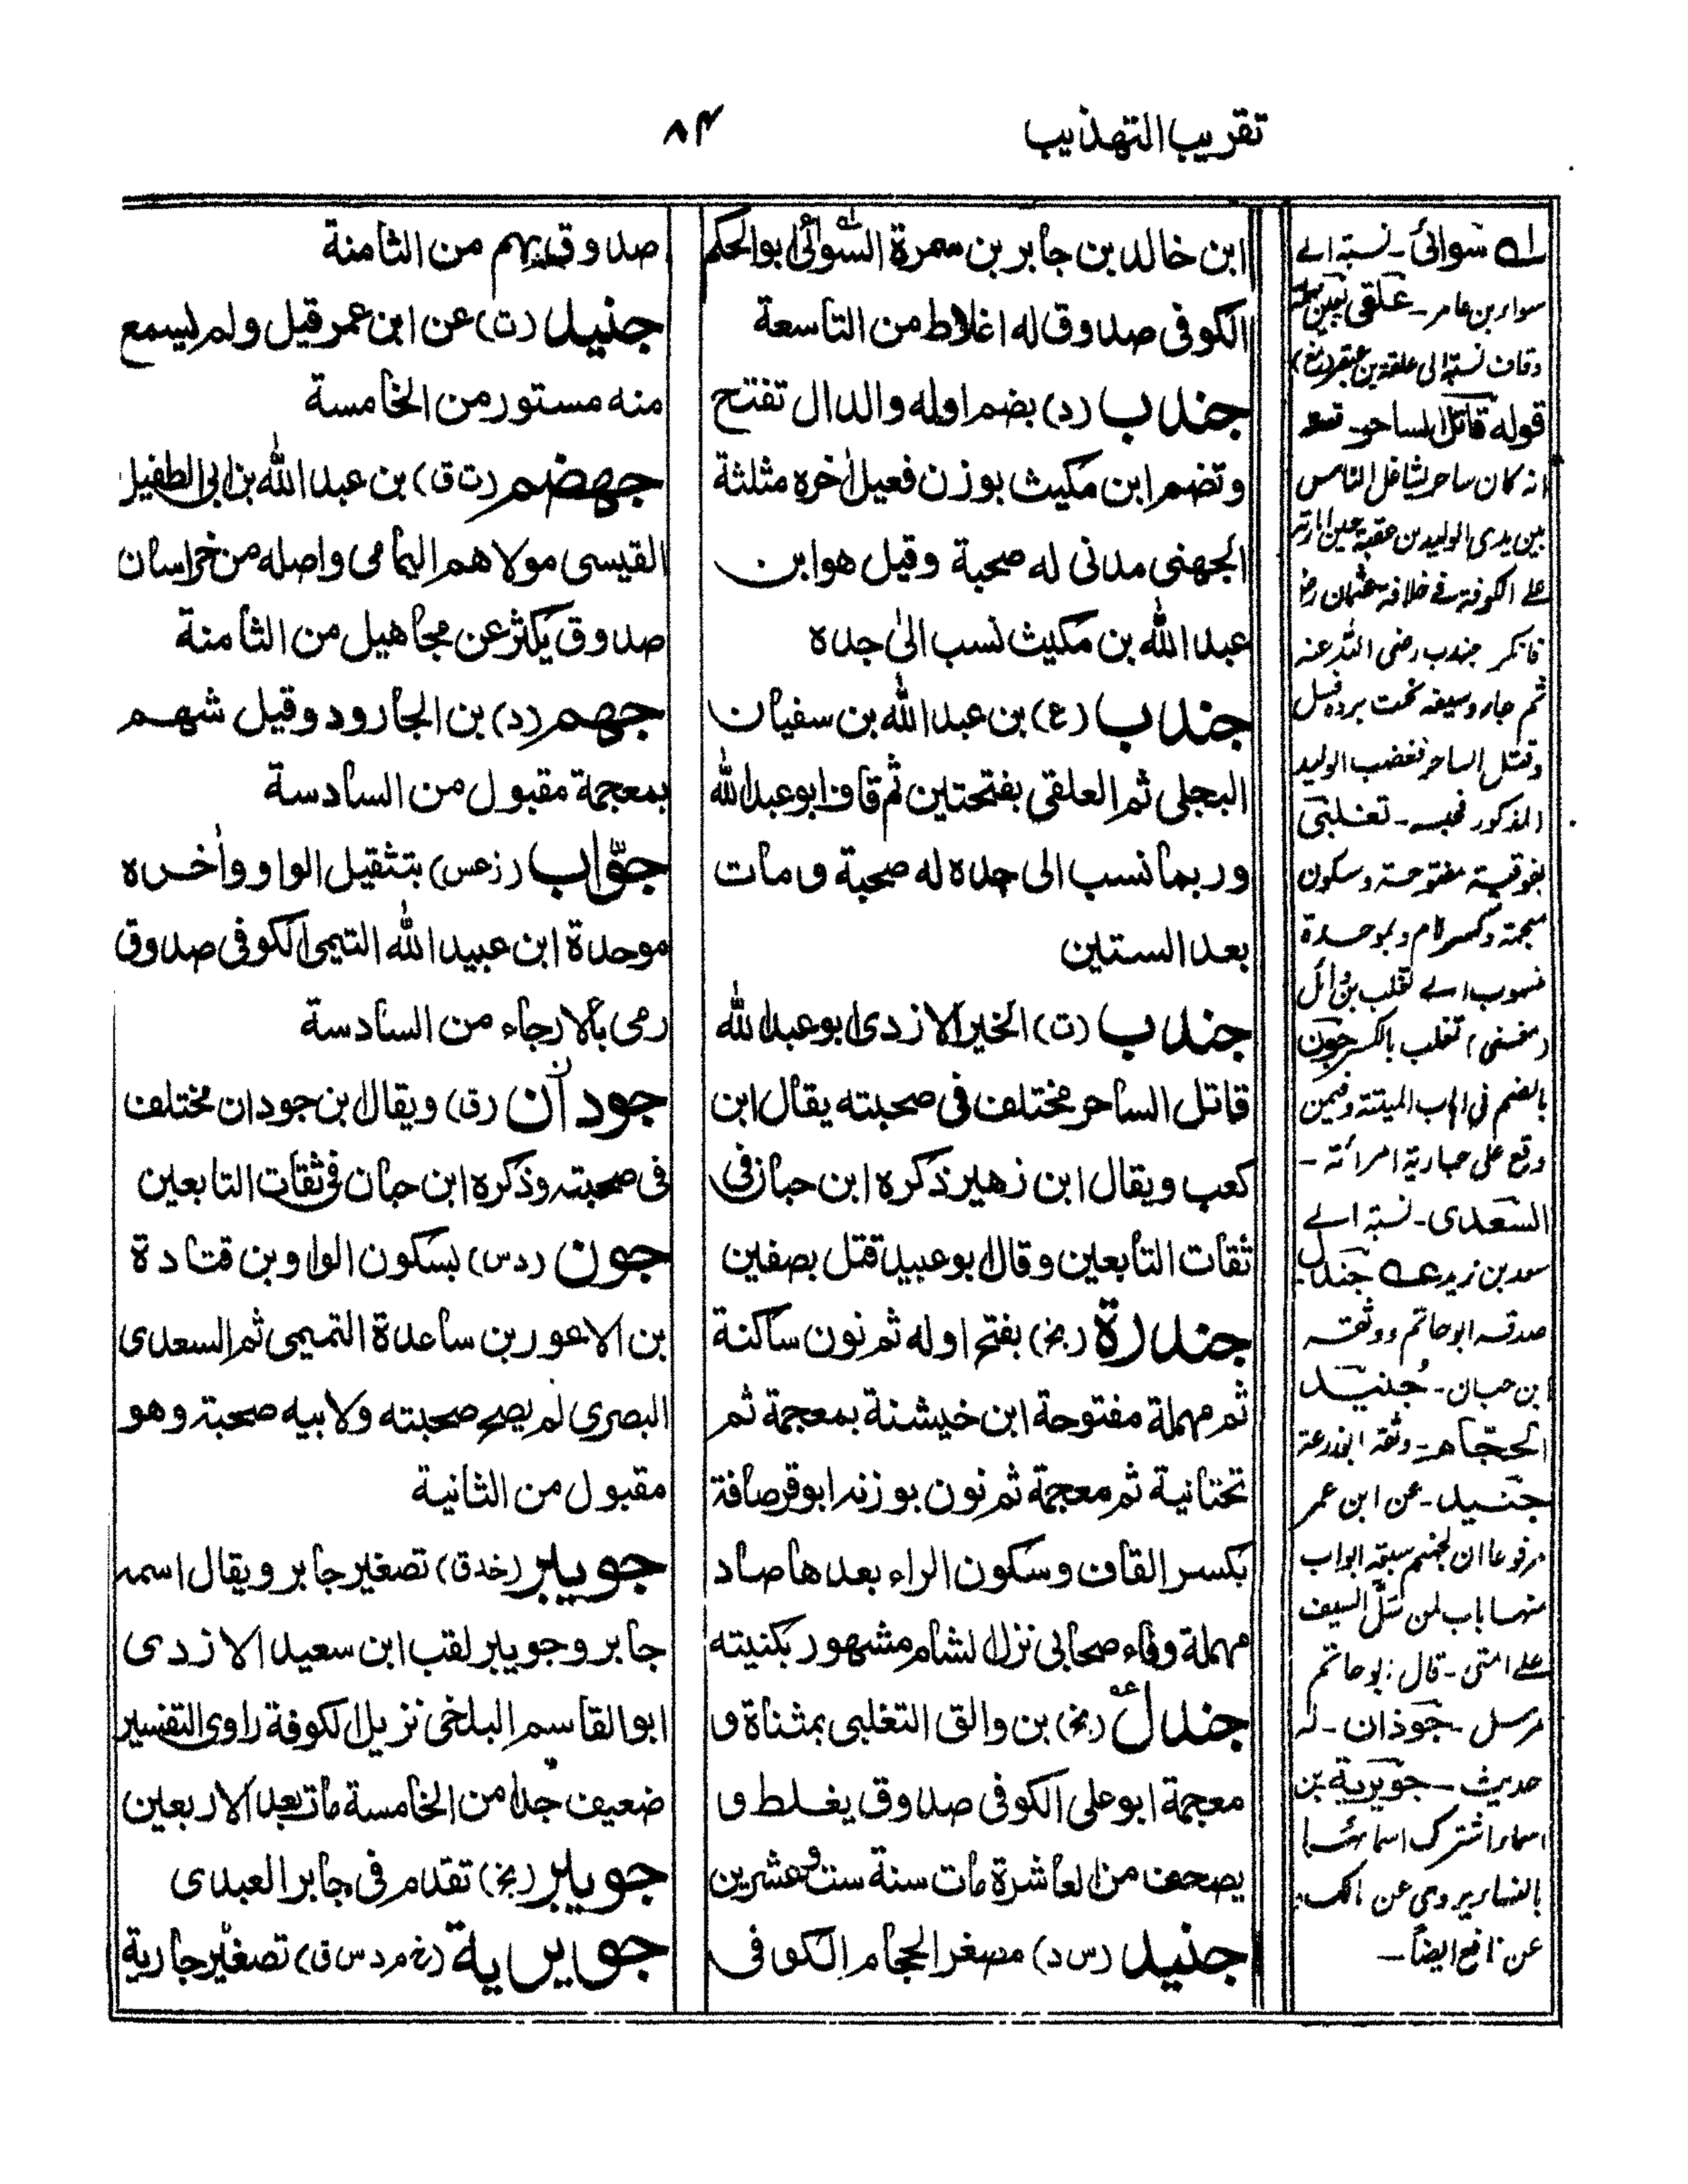 تقريب التهذيب
٨٤
ابن خالد بن جابر بن سمرة السوائى ابو الحكم
الكوفى صدوق له اغلاط من التاسعة
جندب (د) بضم اوله والدال تفتح
وتضم ابن مكيث بوزن فعيل اٰخره مثلثة
الجهنى مدنى له صحبة وقيل هو ابن
عبد الله بن مكيث نسب الىٰ جده
جندب (ع) بن عبد الله بن سفيان
البجلى ثم العلقى بفتحتين ثم قاف ابو عبد الله
وربما نسب الى جده له صحبة ومات
بعد الستين
جندب (ت) الخير الازدى ابو عبد الله
قاتل الساحر مختلف فى صحبته يقال ابن
كعب ويقال ابن زهير ذكره ابن حبان فى
ثقات التابعين وقال ابو عبيد قتل بصفين
جندرة (بخ) بفتح اوله ثم نون ساكنة
ثم مهملة مفتوحة ابن خيشنة بمعجمة ثم
تحتانية ثم معجمة ثم نون بوزنه ابو قرصافة
بكسر القاف وسكون الراء بعدها صاد
مهملة وفاء صحابى نزل الشام مشهور بكنيته
جندل (بخ) بن والق التغلبى بمثناة و
معجمة ابو على الكوفى صدوق يغلط و
يصحف من العاشرة مات سنة ست وعشرين
جنيد (س د) مصغر الحجام الكوفى
صدوق يهم من الثامنة
جنيد (ت) عن ابن عمر قيل ولم يسمع
منه مستور من الخامسة
جهضم (ت ق) بن عبد الله بن ابى الطفيل
القيسى مولاهم اليمامى واصله من خراسان
صدوق يكثر عن مجاهيل من الثامنة
جهم (د) بن الجارود وقيل شهم
بمعجمة مقبول من السادسة
جوّاب (ز عس) بتثقيل الواو واٰخره
موحدة ابن عبيد الله التيمى الكوفى صدوق
رمى بالارجاء من السادسة
جودان (ق) ويقال ابن جودان مختلف
فى صحبته وذكره ابن حبان فى ثقات التابعين
جون (د س) بسكون الواو بن قتادة
بن الاعور بن ساعدة التميمى ثم السعدى
البصرى لم يصح صحبته ولابيه صحبة وهو
مقبول من الثانية
جويبر (خد ق) تصغير جابر ويقال اسمه
جابر وجويبر لقب ابن سعيد الازدى
ابو القاسم البلخى نزيل الكوفة راوى التفسير
ضعيف جدا من الخامسة مات بعد الاربعين
جويبر (بخ) تقدم فى جابر العبدى
جويرية (خ م د س ق) تصغير جارية
له سوائى - نسبة الے
سواء بن عامر - علقى
وقاف نسبة الى علقة بن عبقر
قوله قاتل الساحر
انه كان ساحر الناس
بين يدى الوليد بن عقبة
علے الكوفة فے خلافة عثمان رض
فانكر جندب رضى الله عنه
ثم جاء وسيفه تحت
وقتل الساحر فغضب الوليد
المذكور فحبسه - تغلبى
بفوقية مفتوحة وسكون
معجمة وكسر لام وبموحدة
منسوب الے تغلب بن وائل
(مغنى) تغلب بالكسر جون
بالضم فى
وقع على جارية امرأته -
السعدى - نسبة الے
سعد بن زيد عه جندل
صدقه ابو حاتم ووثقه
ابن حبان - جُنيد
الحجام - وثقه ابو زرعة
جنيد - عن ابن عمر
مرفوعا ان لجهنم سبعة ابواب
منها باب لمن سَلّ السيف
علے امتى - قال ابو حاتم
مرسل - جوذان - له
حديث - جويرية بن
اسماء اشترك
بالنساء يروى عن مالك
عن نافع ايضاً -